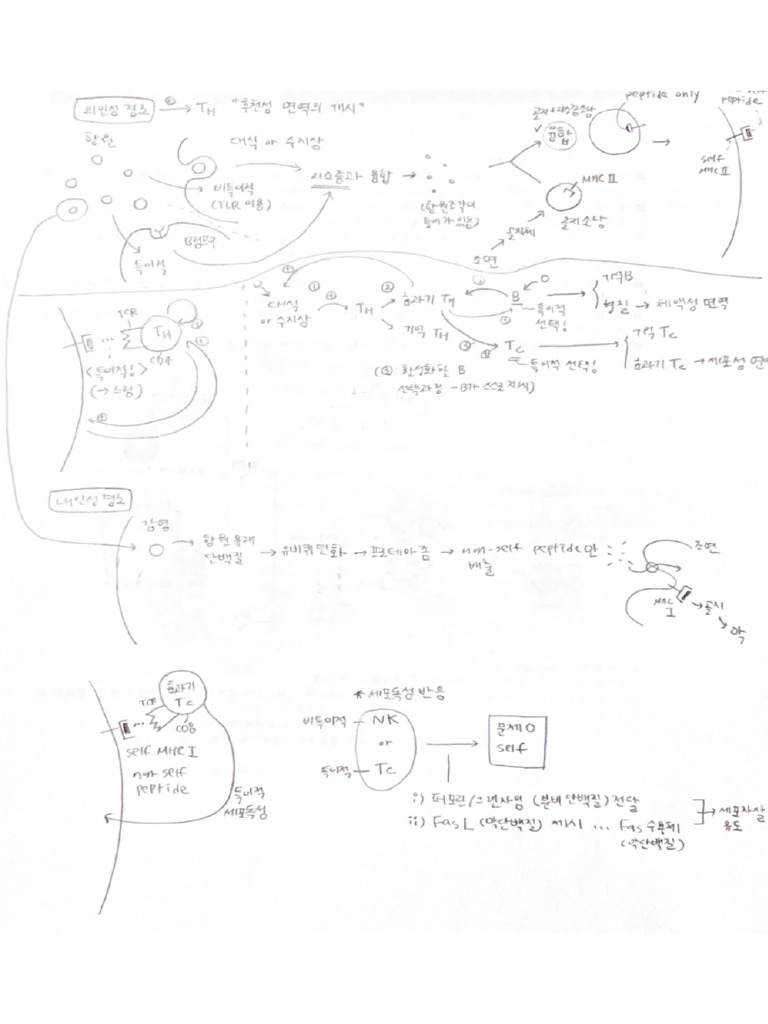 외인성 경로 → TH "후천성 면역의 개시"
항원
대식 or 수지상
비특이적
(TLR 이용)
B림프구
특이적
리소좀과 융합
(항원조각이
들어가 있음)
융합
peptide only
MHC II
골지소낭
골지체
조면
peptide
self
MHC II
TCR
TH
CD4
<특이적!>
대식
or 수지상
→ TH
효과기 TH
기억 TH
B
특이적
선택!
기억B
형질 → 체액성 면역
TC
특이적 선택!
기억 TC
효과기 TC → 세포성 면역
(③ 활성화할 B
선택과정 - B가 스스로 제시)
내인성 경로
감염
항원 유래
단백질
→ 유비퀴틴화 → 프로테아좀 → non-self peptide만
배출
조면
MHC
I
→ 골지
→ 막
효과기
TC
TCR
CD8
self MHC I
non self
peptide
특이적
세포독성
* 세포독성 반응
비특이적 - NK
or
특이적 - TC
문제 O
self
i) 퍼포린/그랜자임 (분비단백질) 전달
ii) FasL (막단백질) 제시 ... Fas 수용체
(막단백질)
→ 세포자살
유도